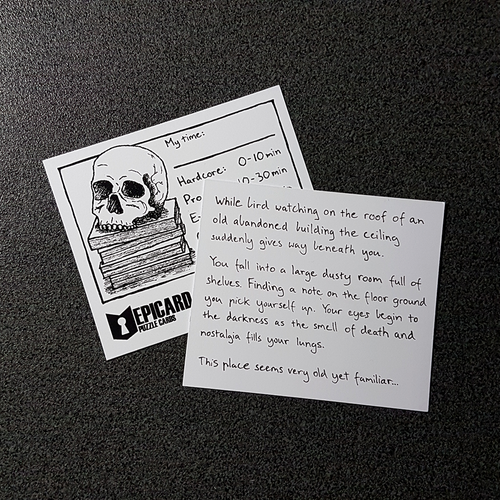 My time:
Hardcore: 0-10 min
Pro 10-30 min
EPICARD
PUZZLE CARDS
While bird watching on the roof of an
old abandoned building the ceiling
suddenly gives way beneath you.
You fall into a large dusty room full of
shelves. Finding a note on the floor ground
you pick yourself up. Your eyes begin to
the darkness as the smell of death and
nostalgia fills your lungs.
This place seems very old yet familiar...